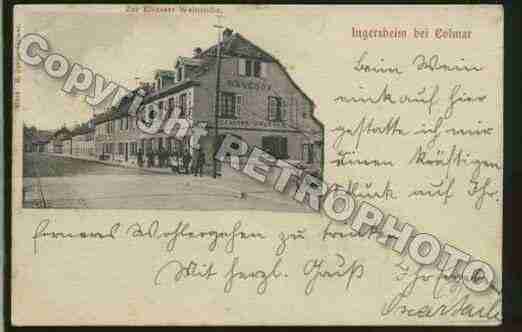 Zur Elsässer Weinstube.
Ingersheim bei Colmar
Beim Wein
einkauf hier
gestatte ich mir
einen kräftigen
Schluck auf Ihr.
ferneres Wohlergehen zu trinken
Mit herzl. Gruß Ihr
Copyright © RETROPHOTO